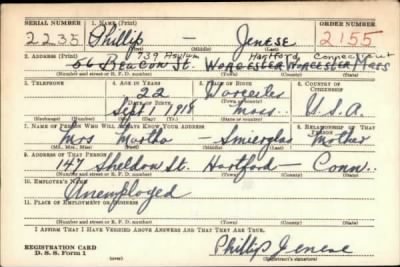 SERIAL NUMBER 1. NAME (Print) ORDER NUMBER
2235 Phillip — Jenese 2155
(First) (Middle) (Last)
739 Asylum Hartford, Connecticut
2. ADDRESS (Print) 66 Beacon St. Worcester Worcester Mass
(Number and street or R. F. D. number) (Town) (County) (State)
3. TELEPHONE 4. AGE IN YEARS 5. PLACE OF BIRTH 6. COUNTRY OF CITIZENSHIP
22 Worcester
DATE OF BIRTH (Town or county)
Sept 7 1918 Mass. U.S.A.
(Exchange) (Number) (Mo.) (Day) (Yr.) (State or country)
7. NAME OF PERSON WHO WILL ALWAYS KNOW YOUR ADDRESS 8. RELATIONSHIP OF THAT PERSON
Mrs Martha — Smierglas Mother
(Mr., Mrs., Miss) (First) (Middle) (Last)
9. ADDRESS OF THAT PERSON
149 Sheldon St. Hartford — Conn.
(Number and street or R. F. D. number) (Town) (County) (State)
10. EMPLOYER'S NAME
Unemployed
11. PLACE OF EMPLOYMENT OR BUSINESS
(Number and street or R. F. D. number) (Town) (County) (State)
I AFFIRM THAT I HAVE VERIFIED ABOVE ANSWERS AND THAT THEY ARE TRUE.
REGISTRATION CARD
D. S. S. Form 1 Phillip Jenese